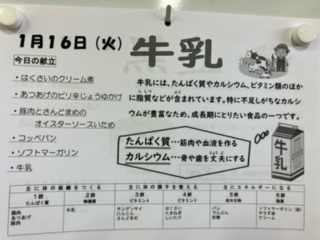 1月16日(火)
牛乳
今日の献立
・はくさいのクリーム煮
・あつあげのピリ辛じょうゆかけ
・豚肉とさんどまめの
オイスターソースいため
・コッペパン
・ソフトマーガリン
・牛乳
牛乳には、たんぱく質やカルシウム、ビタミン類のほか
に脂質などが含まれています。特に不足しがちなカルシ
ウムが豊富なため、成長期にとりたい食品の一つです。
たんぱく質…筋肉や血液を作る
カルシウム…骨や歯を丈夫にする
牛乳
主に体の組織をつくる 主に体の調子を整える 主にエネルギーになる
1群 2群 3群 4群 5群 6群
鶏肉 牛乳 チンゲンサイ はくさい パン ソフトマーガリン
あつあげ にんじん たまねぎ でんぷん サラダ油
豚肉 さんどまめ しいたけ 砂糖 クリーム